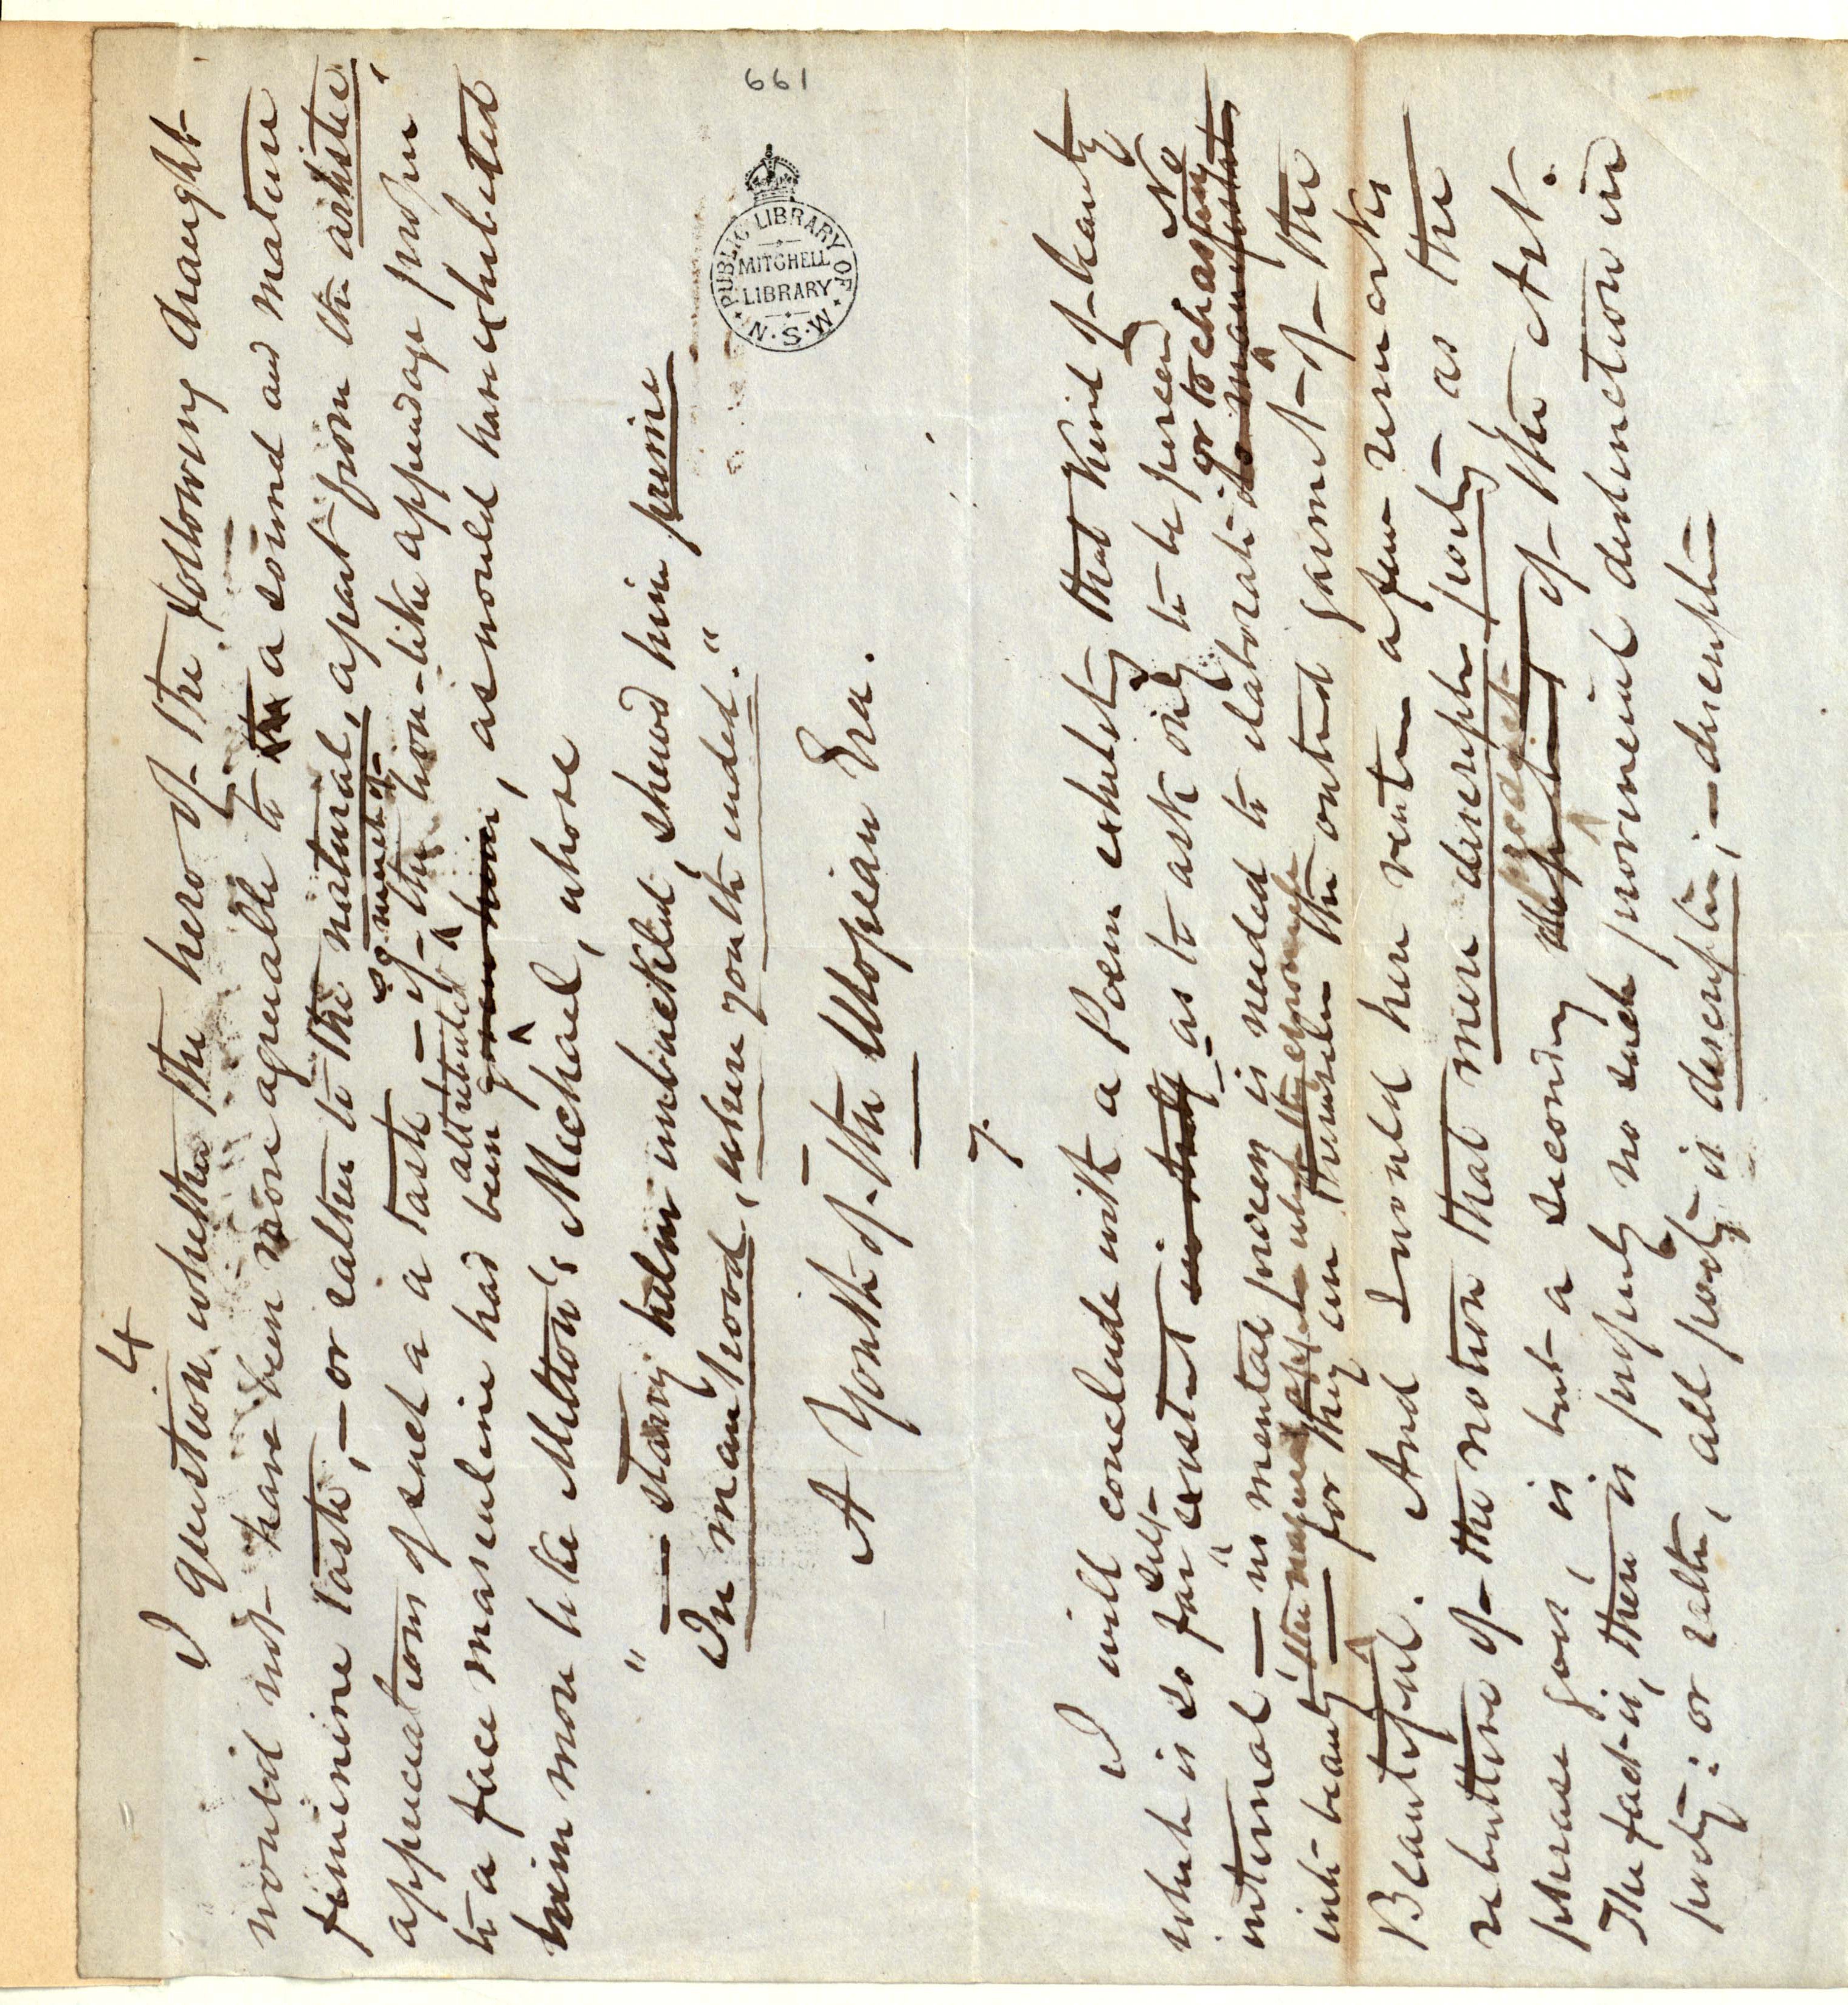 4
I question whether the hero of the following draught
would not have been more agreeable to a sound and mature
feminine taste,—or rather to the natural, apart from the artistic
appreciations of such a taste—if so much of the lion-like appendage proper
to a face masculine had been attributed given him, as would have exhibited
him more like Milton's Michael, whose
"— starry helm unbuckled, shewed him prime
In manhood, where youth ended."
A Youth of the Utopian Era.
661
PUBLIC LIBRARY OF N.S.W.
MITCHELL LIBRARY
7.
I will conclude with a Poem exhibiting that kind of beauty
which is so far self-existent in itself as to ask only to be perceived No
internal — no mental process is needed to elaborate or to chasten
into beauty for they are themselves the outward garment of the
Beautiful. And I would here venture a few remarks
rebuttive of the notion that mere descriptive poetry as the
phrase goes, is but a secondary of the Art.
The fact is, there is properly no such provincial distinction in
poetry: or rather, all poetry is descriptive;—descriptive